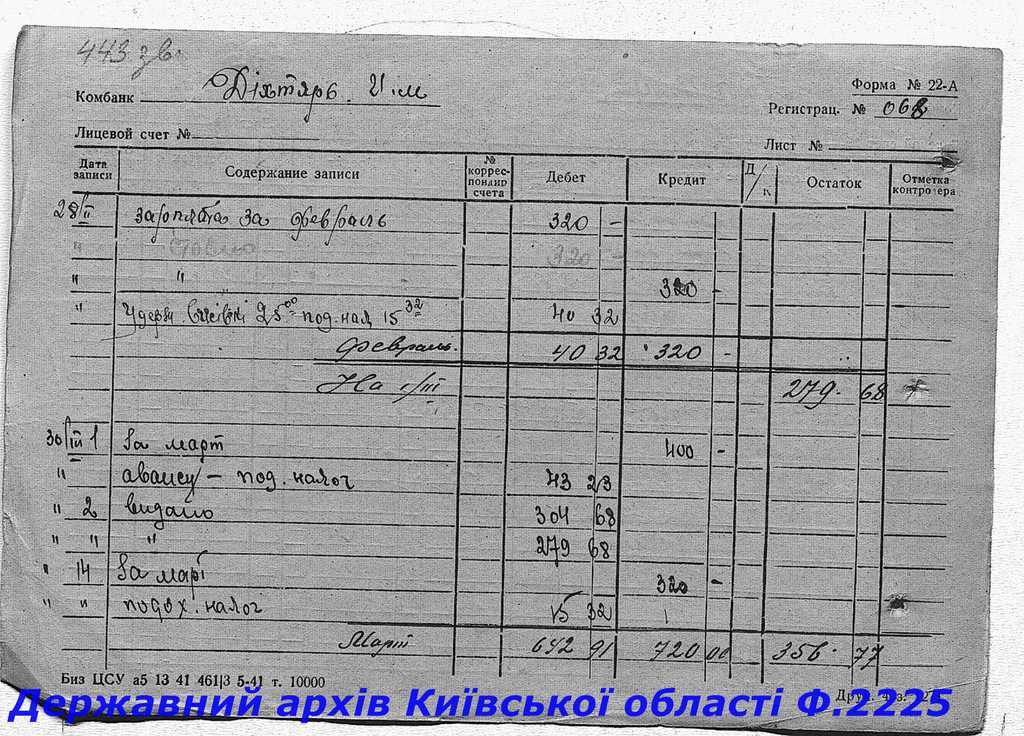 443 зв.
Форма № 22-А
Комбанк Діхтярь. И.м
Регистрац. № 068
Лицевой счет №
Лист №
Дата записи Содержание записи № коррес-пондир счета Дебет Кредит Д/к Остаток Отметка контролера
28/II зарплата за февраль 320 -
" 320 -
" " 320 -
" Удерж. 25 00 под. нал. 15 32 40 32
февраль. 40 32 320 -
На 1/III 279. 68
30/III 1 За март 400 -
" авансу - под. налог 43 23
" 2 видано 304 68
" " " 279 68
" 14 За март 320 -
" " подох. налог 15 32
Март 642 91 720 00 356. 77
Биз ЦСУ а5 13 41 461|3 5-41 т. 10000
Державний архів Київської області Ф.2225